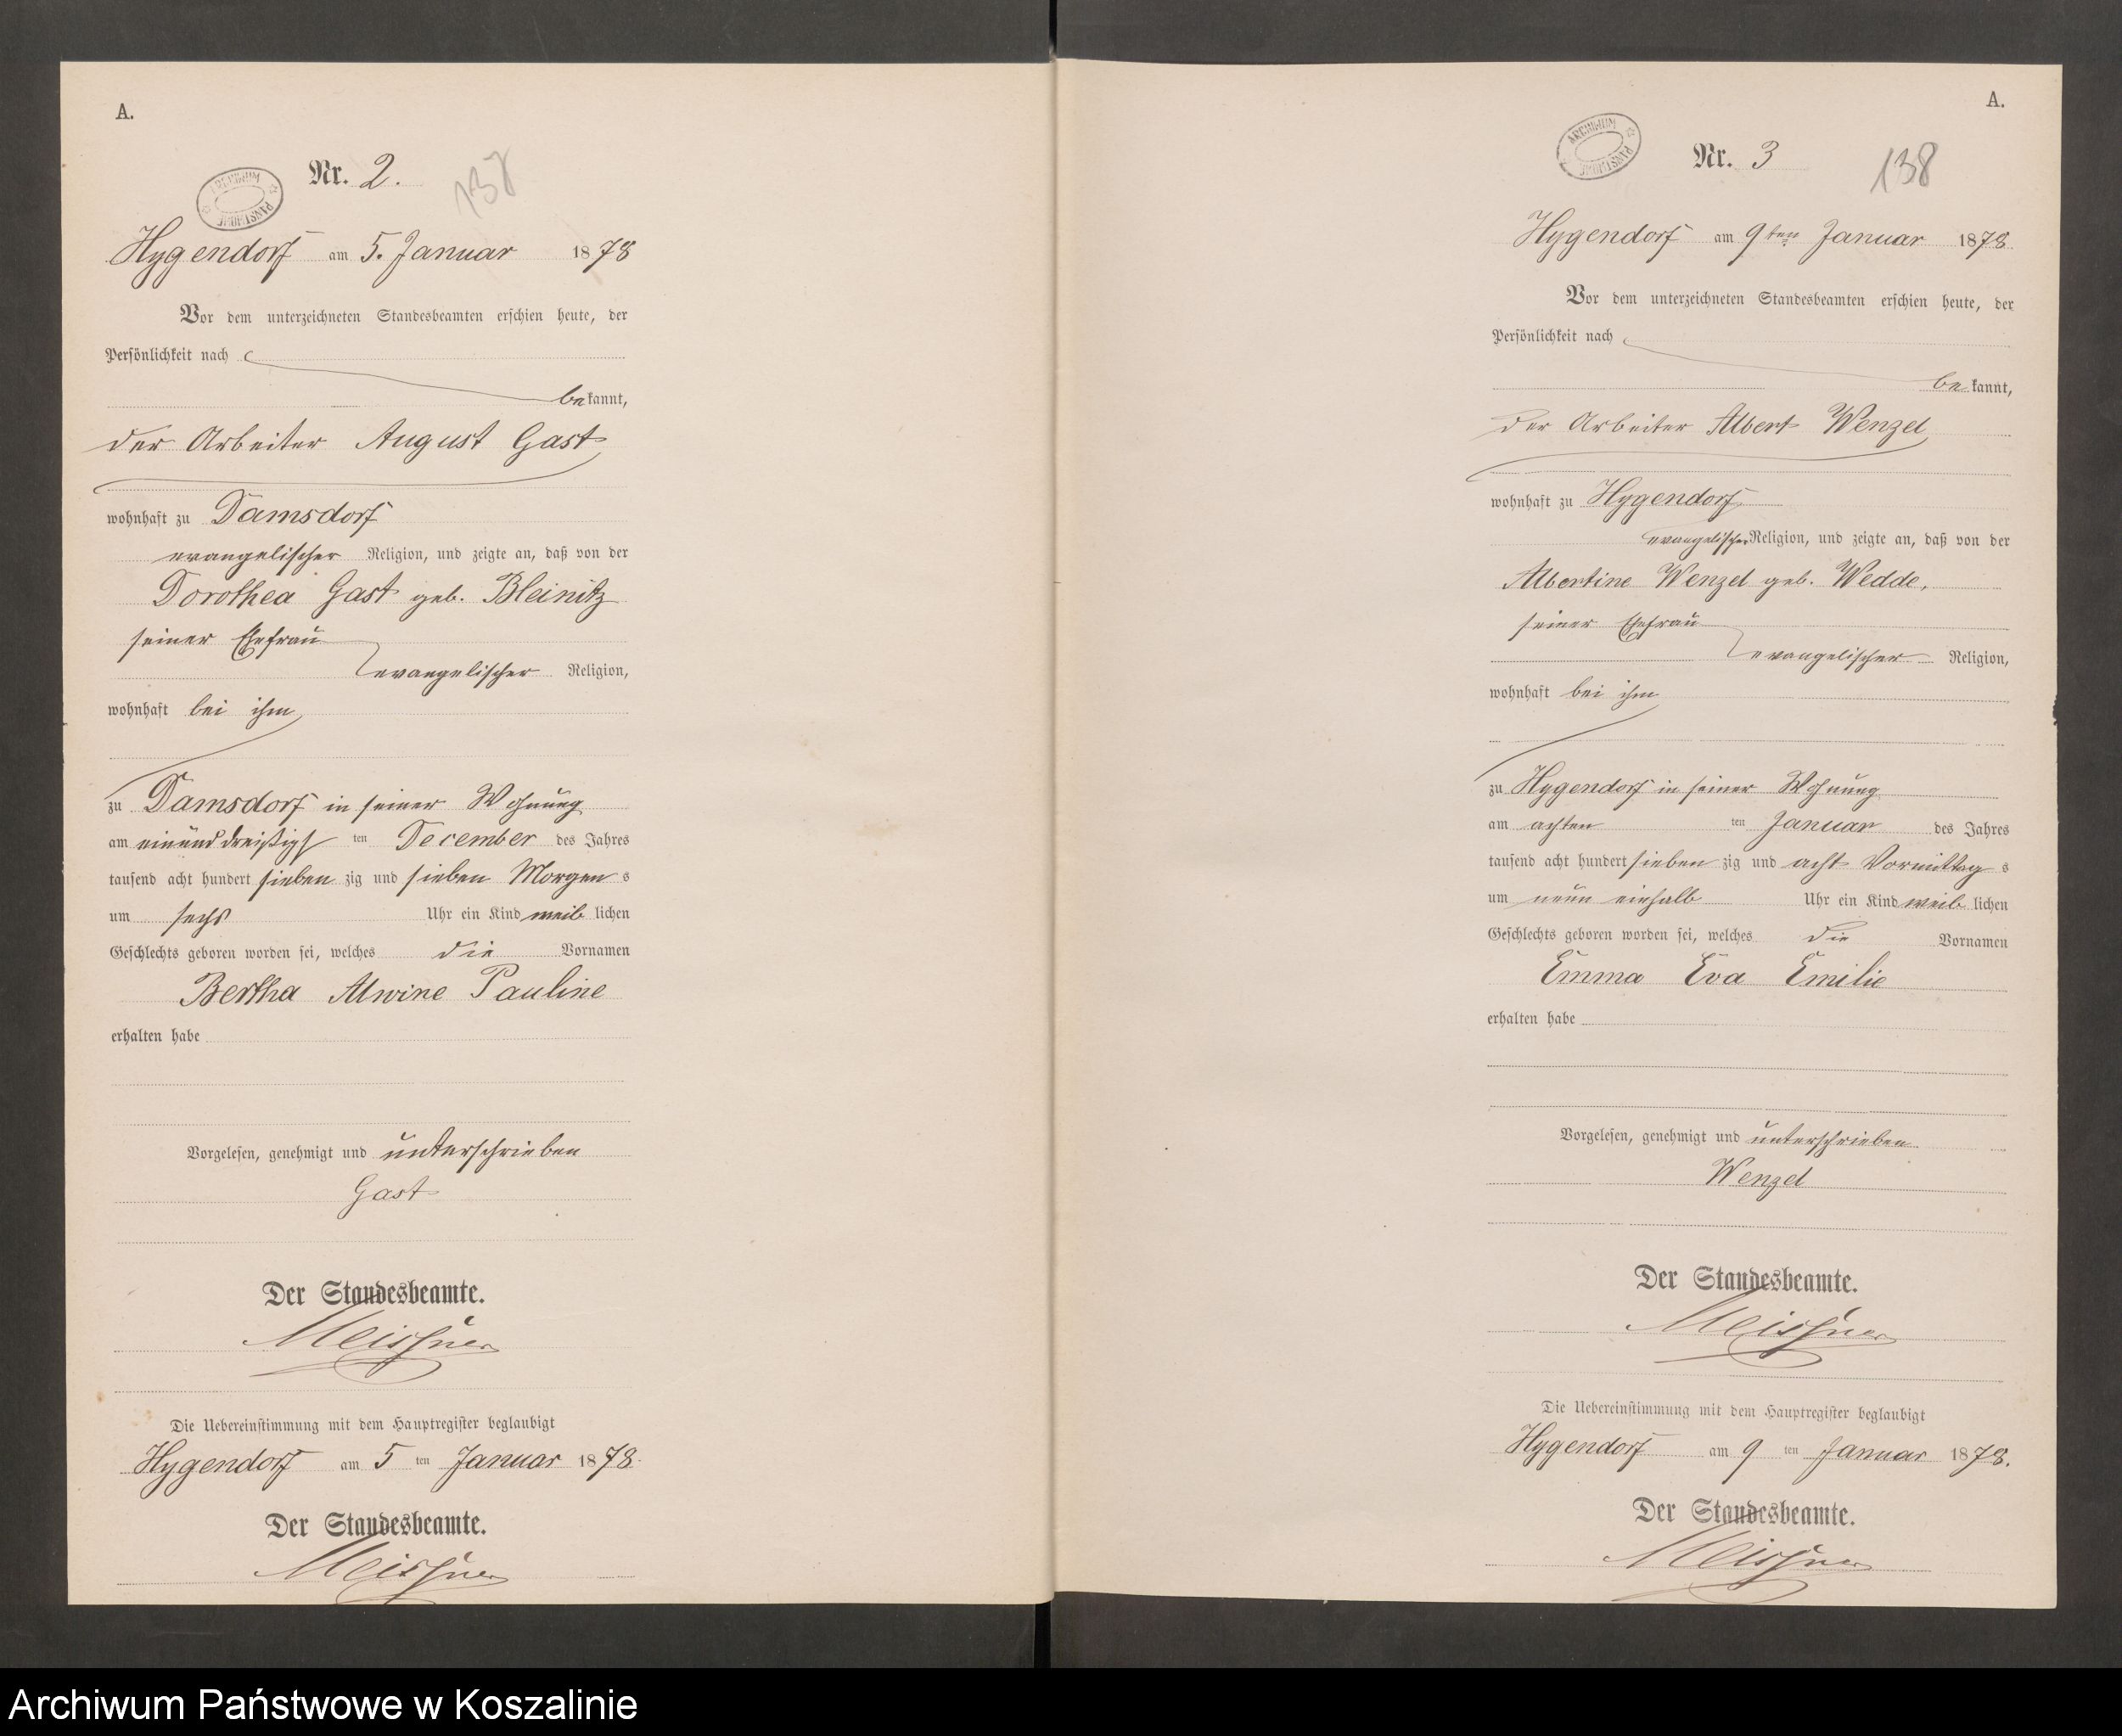 A.
Nr. 2.
138
ARCHIWUM PAŃSTWOWE
Hygendorf am 5. Januar 1878
Vor dem unterzeichneten Standesbeamten erschien heute, der
Persönlichkeit nach
bekannt,
der Arbeiter August Gast
wohnhaft zu Damsdorf
evangelischer Religion, und zeigte an, daß von der
Dorothea Gast geb. Bleinitz
seiner Ehefrau
evangelischer Religion,
wohnhaft bei ihm
zu Damsdorf in seiner Wohnung
am einunddreißigst ten December des Jahres
tausend acht hundert sieben zig und sieben Morgen s
um sechs Uhr ein Kind weib lichen
Geschlechts geboren worden sei, welches die Vornamen
Bertha Alwine Pauline
erhalten habe
Vorgelesen, genehmigt und unterschrieben
Gast
Der Standesbeamte.
Meissner
Die Uebereinstimmung mit dem Hauptregister beglaubigt
Hygendorf am 5 ten Januar 1878.
Der Standesbeamte.
Meissner
A.
Nr. 3
138
ARCHIWUM PAŃSTWOWE
Hygendorf am 9ten Januar 1878
Vor dem unterzeichneten Standesbeamten erschien heute, der
Persönlichkeit nach
bekannt,
der Arbeiter Albert Wenzel
wohnhaft zu Hygendorf
evangelischer Religion, und zeigte an, daß von der
Albertine Wenzel geb. Wedde,
seiner Ehefrau
evangelischer Religion,
wohnhaft bei ihm
zu Hygendorf in seiner Wohnung
am achten ten Januar des Jahres
tausend acht hundert sieben zig und acht Vormittag s
um neun einhalb Uhr ein Kind weib lichen
Geschlechts geboren worden sei, welches die Vornamen
Emma Eva Emilie
erhalten habe
Vorgelesen, genehmigt und unterschrieben
Wenzel
Der Standesbeamte.
Meissner
Die Uebereinstimmung mit dem Hauptregister beglaubigt
Hygendorf am 9 ten Januar 1878.
Der Standesbeamte.
Meissner
Archiwum Państwowe w Koszalinie